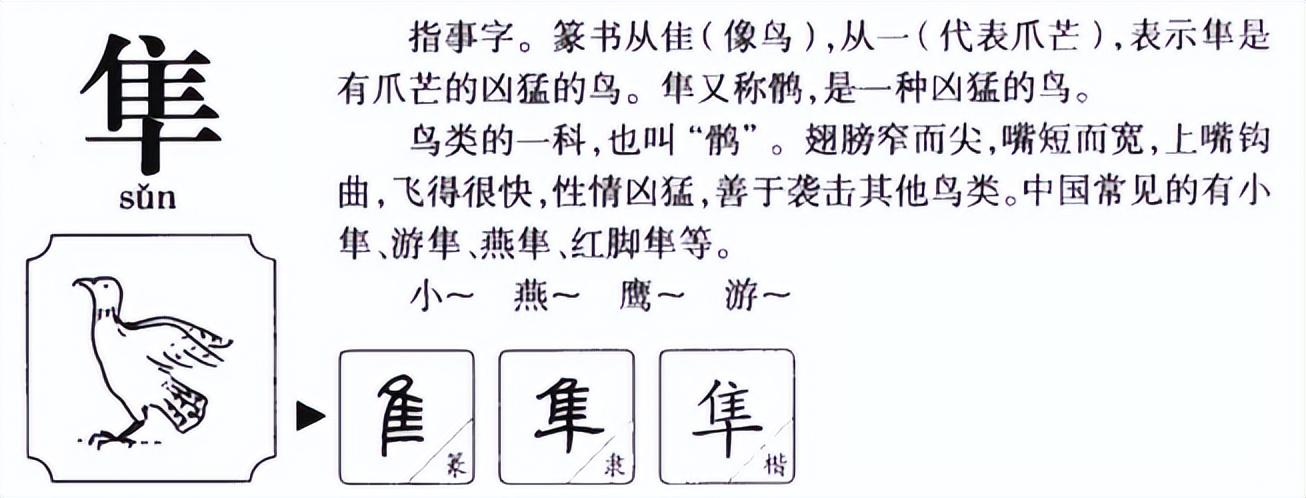 隼
sǔn
指事字。篆书从隹(像鸟),从一(代表爪芒),表示隼是
有爪芒的凶猛的鸟。隼又称鹘,是一种凶猛的鸟。
鸟类的一科,也叫“鹘”。翅膀窄而尖,嘴短而宽,上嘴钩
曲,飞得很快,性情凶猛,善于袭击其他鸟类。中国常见的有小
隼、游隼、燕隼、红脚隼等。
小～ 燕～ 鹰～ 游～
隼 篆
隼 隶
隼 楷